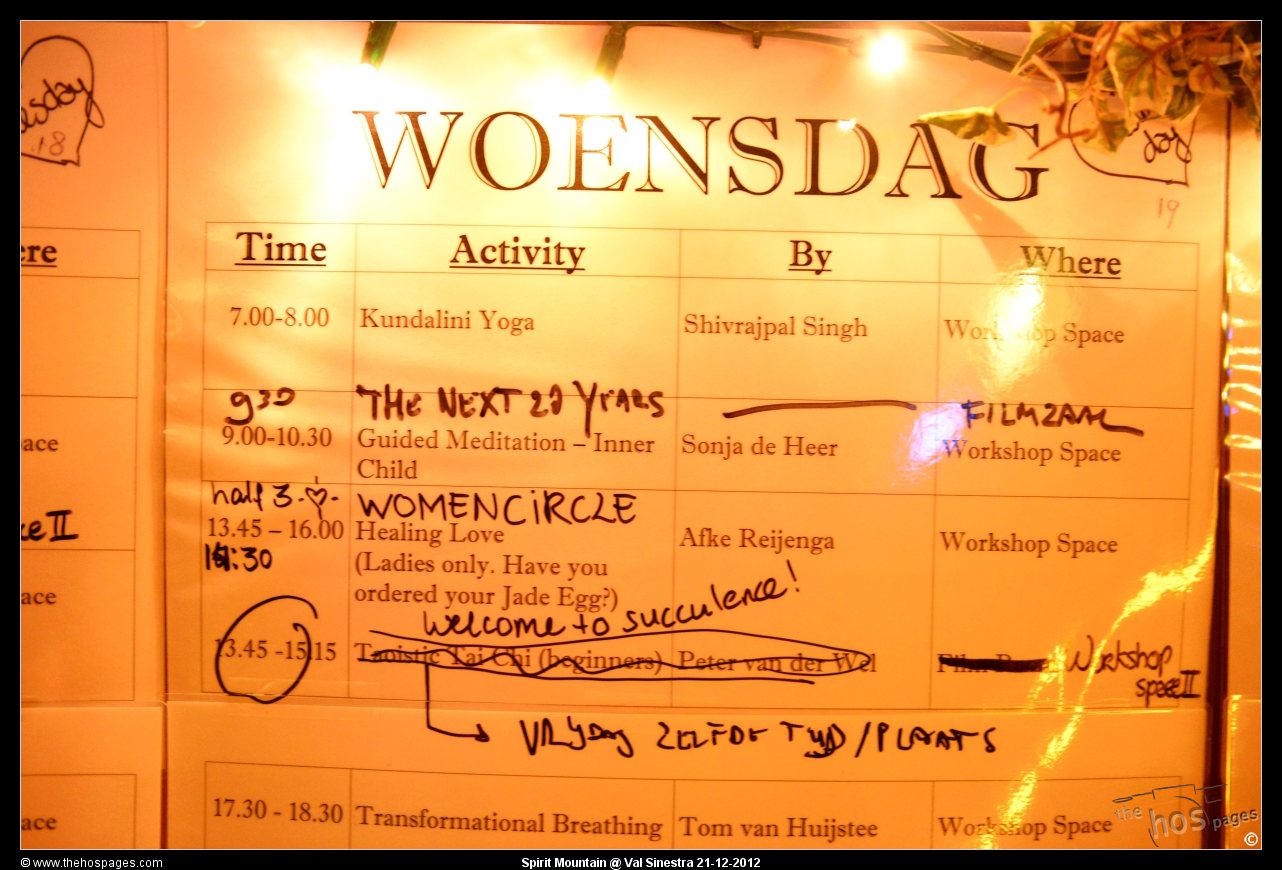 sday
18
WOENSDAG
day
19
ere
Time Activity By Where
7.00-8.00 Kundalini Yoga Shivrajpal Singh Workshop Space
930 THE NEXT 20 YEARS FILMZAAL
9.00-10.30 Guided Meditation – Inner Sonja de Heer Workshop Space
Child
ace
half 3 WOMENCIRCLE
13.45 – 16.00 Healing Love Afke Reijenga Workshop Space
:30 (Ladies only. Have you
ordered your Jade Egg?)
ce II
ace
Welcome to succulence!
13.45 -15.15 Taoistic Tai Chi (beginners) Peter van der Wel Workshop
space II
VRIJDAG ZELFDE TIJD/PLAATS
17.30 - 18.30 Transformational Breathing Tom van Huijstee Workshop Space
ace
the hos pages
©
© www.thehospages.com Spirit Mountain @ Val Sinestra 21-12-2012